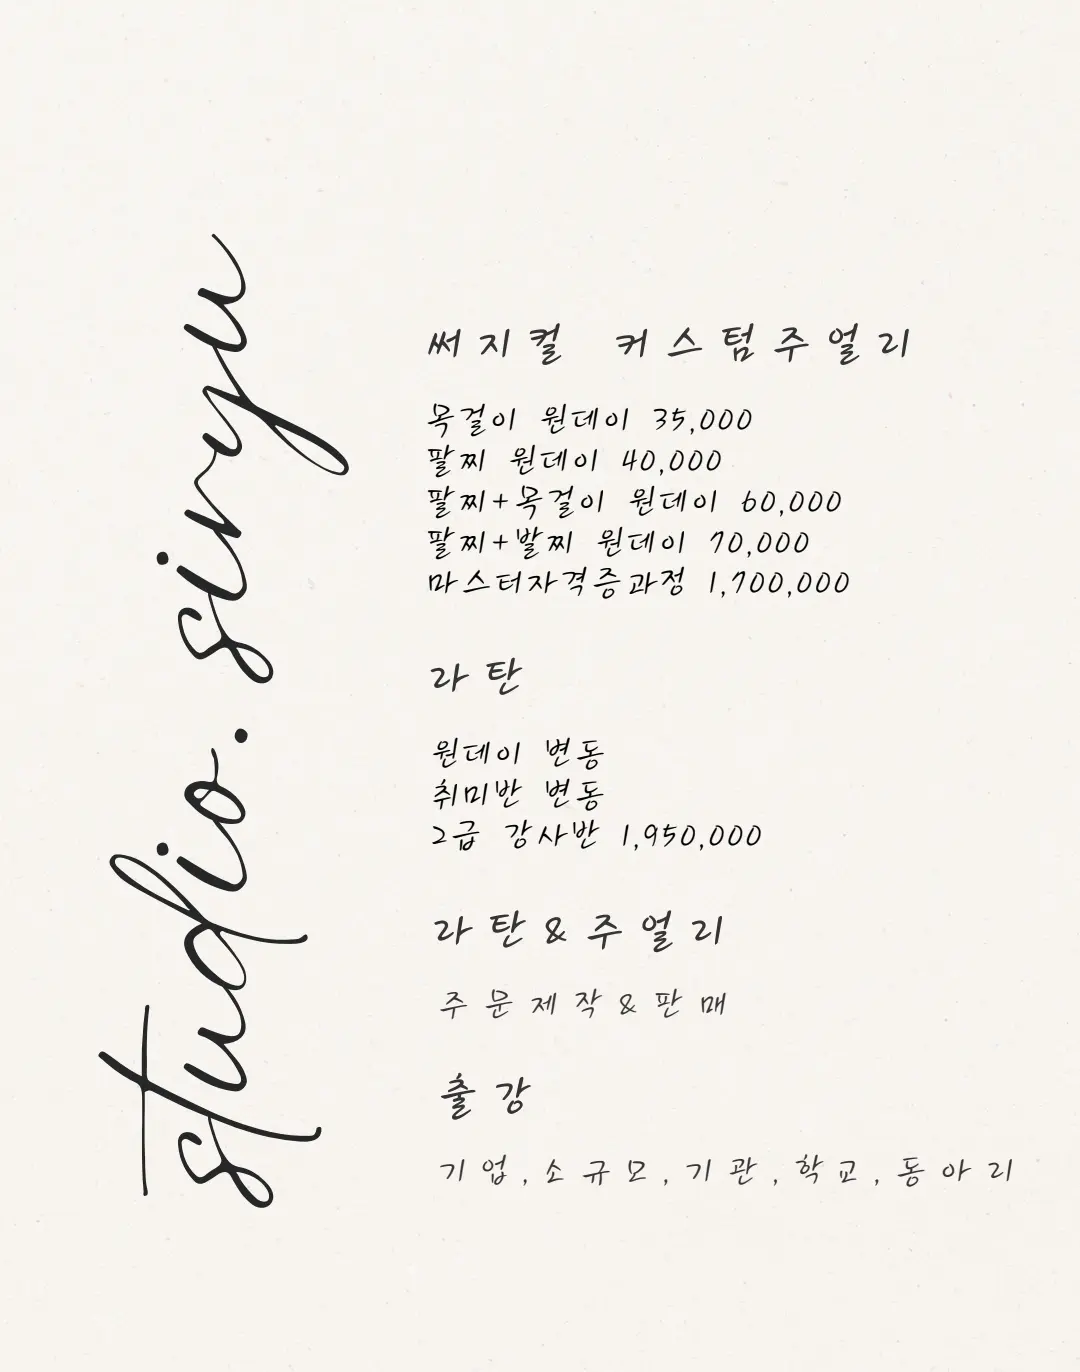 studio. sinyu
써지컬 커스텀주얼리
목걸이 원데이 35,000
팔찌 원데이 40,000
팔찌+목걸이 원데이 60,000
팔찌+발찌 원데이 70,000
마스터자격증과정 1,700,000
라탄
원데이 변동
취미반 변동
2급 강사반 1,950,000
라탄&주얼리
주문제작&판매
출강
기업,소규모,기관,학교,동아리